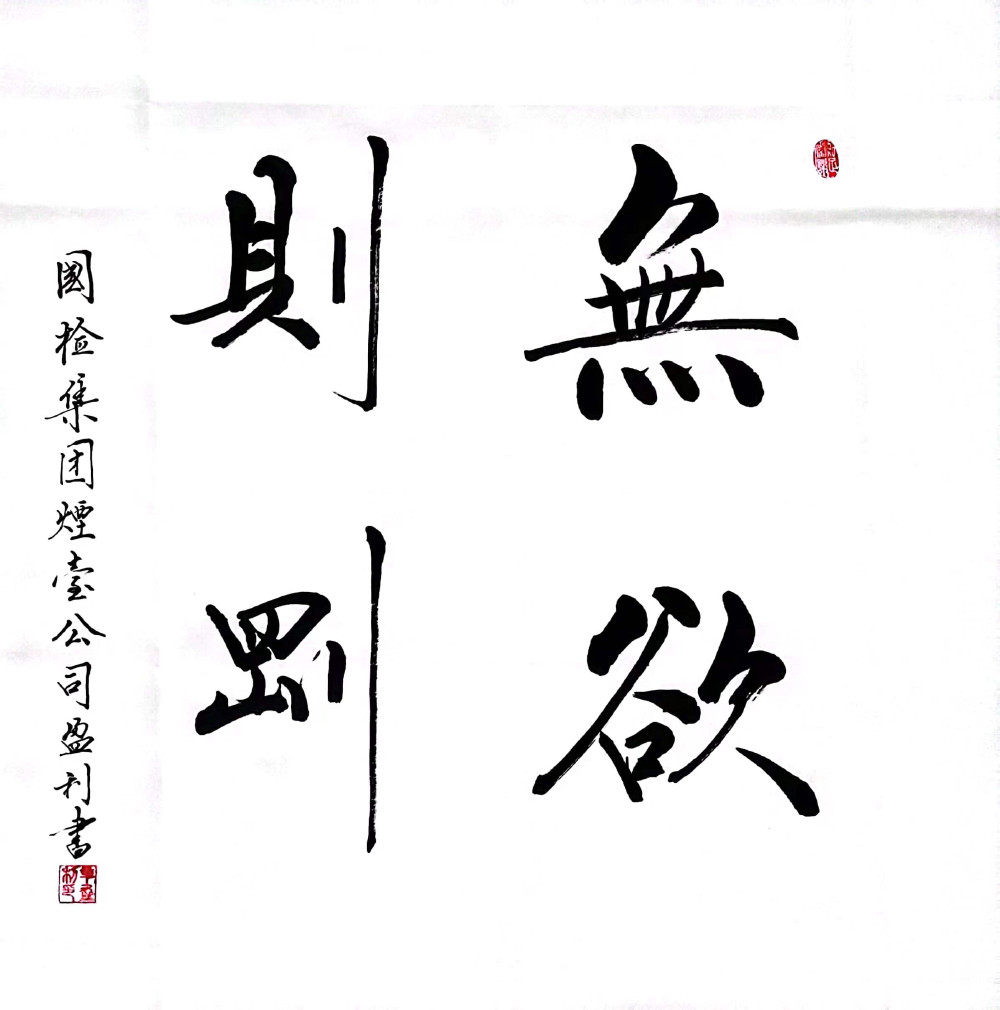 無欲
則剛
國检集团煙臺公司盈利書